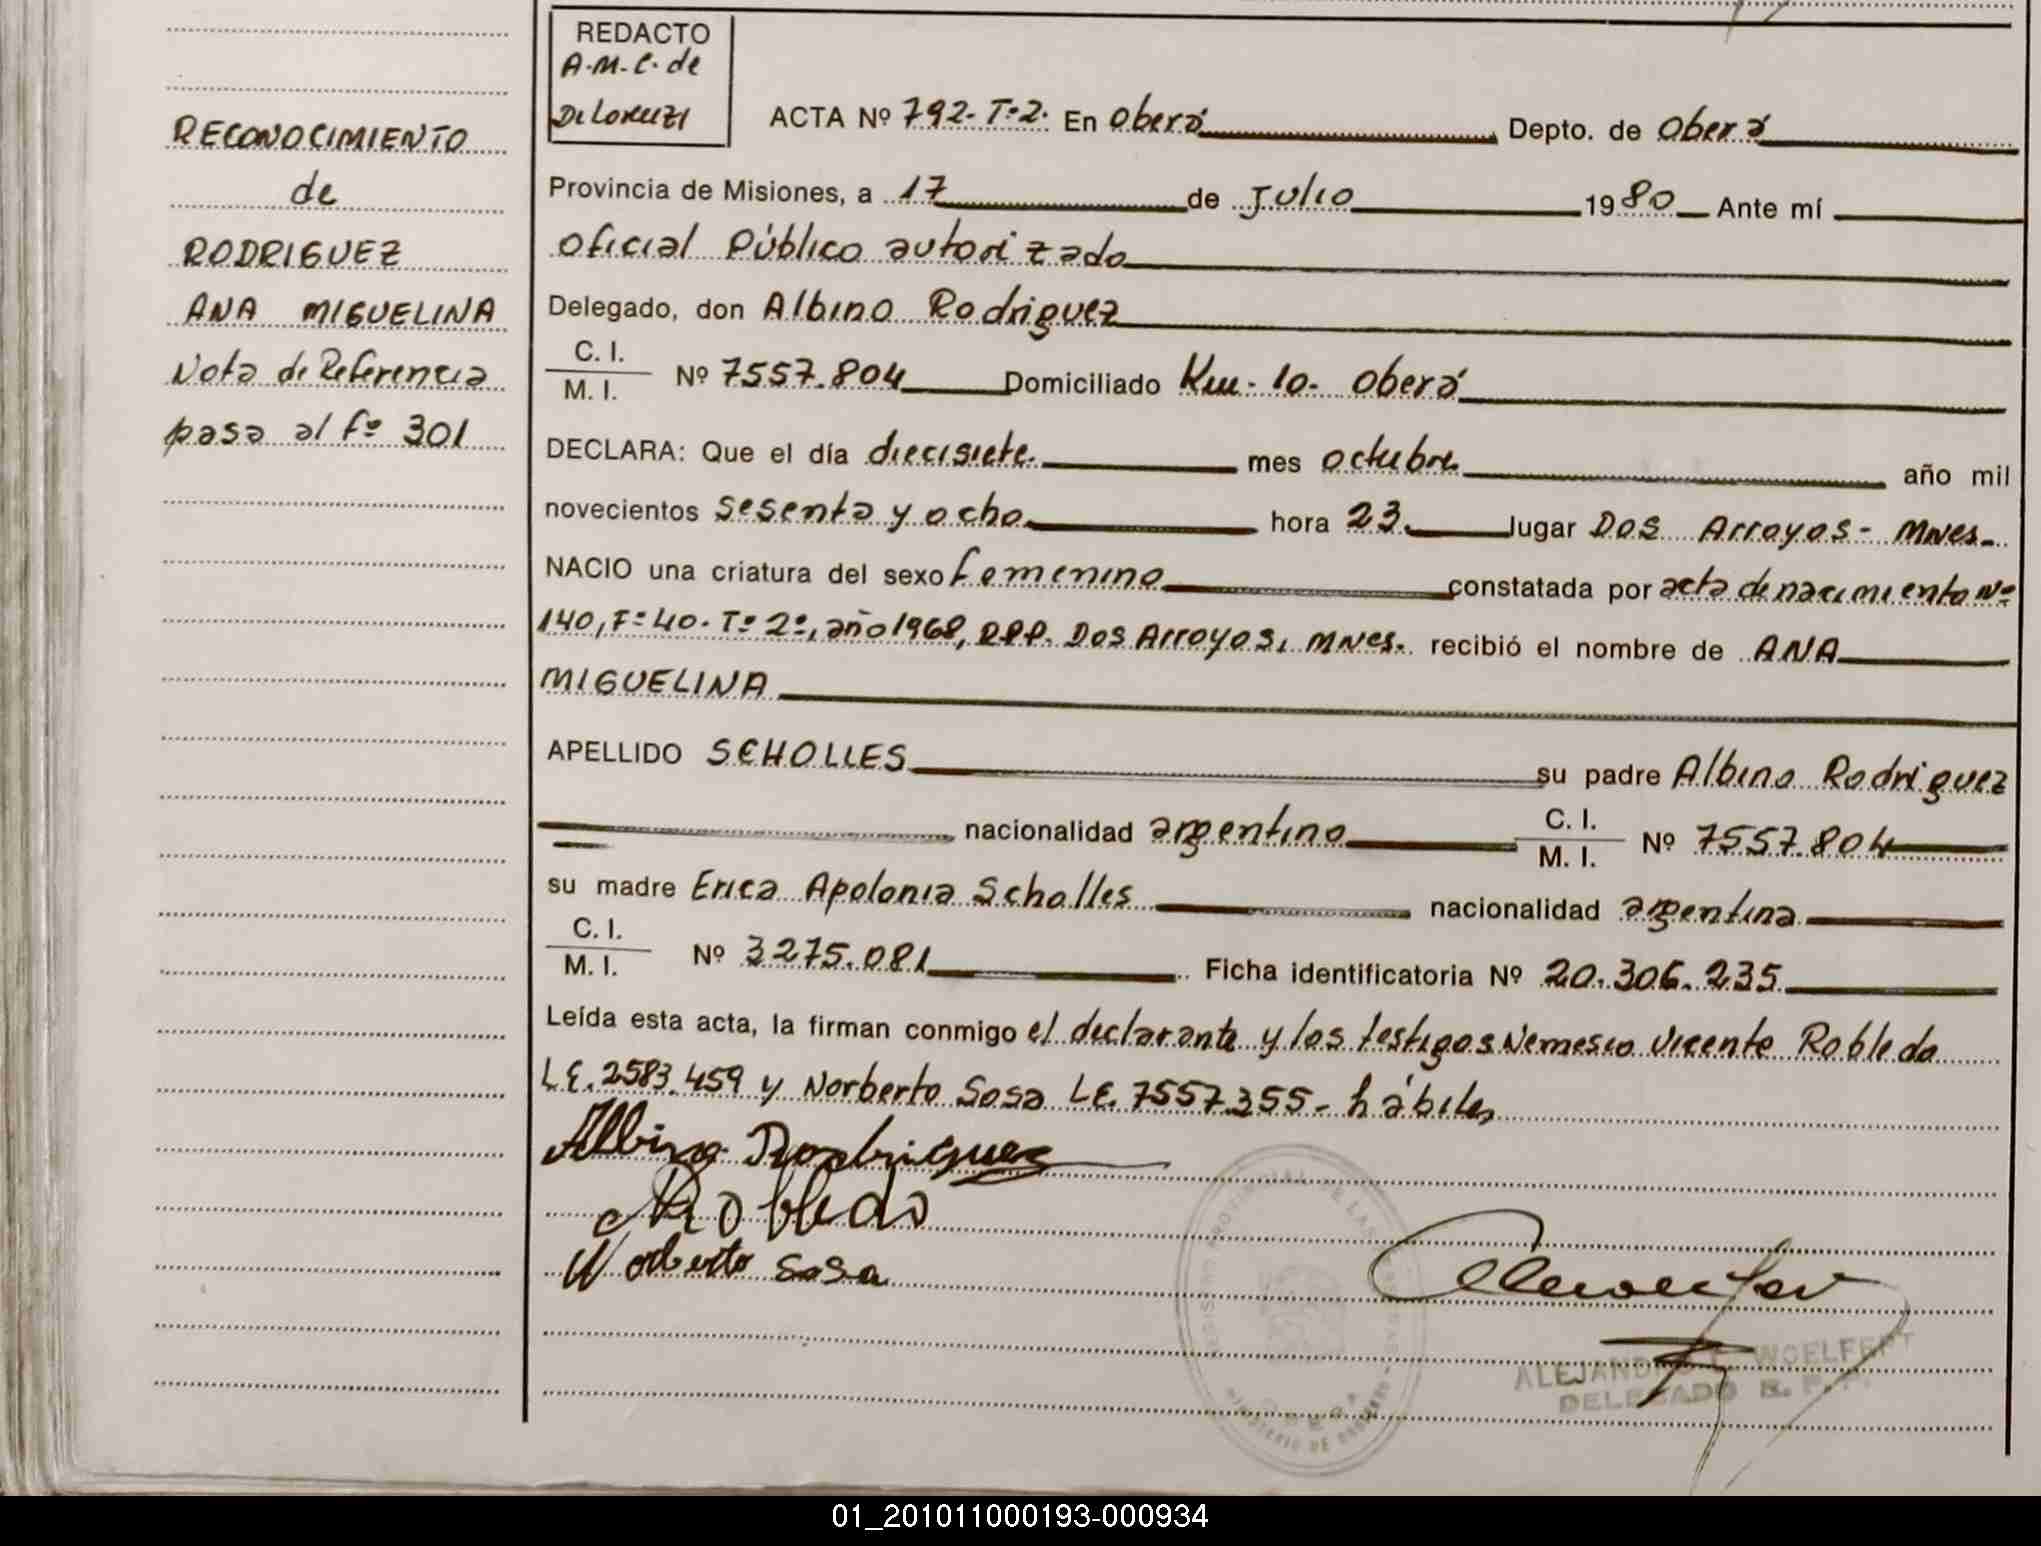 REDACTO
A.M.C. de
De Lorenzi
ACTA Nº 792. Tº 2. En Oberá Depto. de Oberá
Provincia de Misiones, a 17 de Julio 1980 Ante mí
Oficial Público autorizado
Delegado, don Albino Rodriguez
C. I.
M. I. Nº 7557.804 Domiciliado Km. 10. Oberá
DECLARA: Que el día diecisiete. mes octubre año mil
novecientos sesenta y ocho hora 23. lugar Dos Arroyos - Mnes.
NACIO una criatura del sexo femenino constatada por acta de nacimiento Nº
140, Fº 40. Tº 2º, año 1968, RPP. Dos Arroyos, Mnes. recibió el nombre de ANA
MIGUELINA
APELLIDO SCHOLLES su padre Albino Rodriguez
nacionalidad argentino C. I.
M. I. Nº 7557.804
su madre Erica Apolonia Scholles nacionalidad argentina
C. I.
M. I. Nº 3275.081 Ficha identificatoria Nº 20.306.235
Leída esta acta, la firman conmigo el declarante y los testigos Nemesio Vicente Robledo
L.E. 2583.459 y Norberto Sosa L.E. 7557.355 - hábiles
Albino Rodriguez
Robledo
Norberto Sosa
ALEJANDRO WOELFERT
DELEGADO R. P. P.
RECONOCIMIENTO
de
RODRIGUEZ
ANA MIGUELINA
Nota de Referencia
pasa al fº 301
01_201011000193-000934